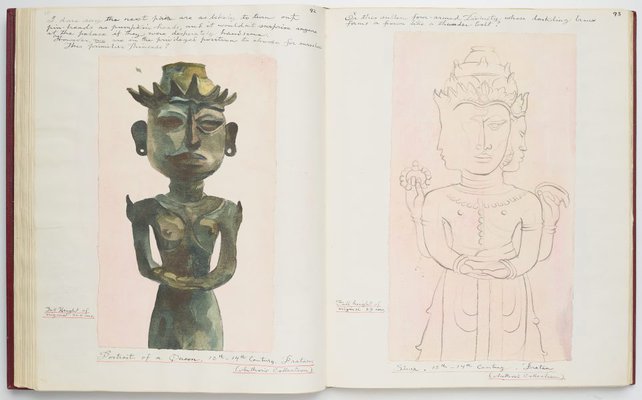 92
I dare say the next pair are as likely to turn out
pin-heads as pumpkin-heads, and it wouldn't surprise anyone
at the palace if they were desperately handsome.
However, we are in the privileged position to choose for ourselves
This primitive Princess?
Full height of
original
Portrait of a Queen, 13th-14th Century.
(Author's Collection)
93
Or this sullen four-armed Divinity, whose darkling brows
form a frown like a thunder bolt?
Full height of
original
Shiva, 13th-14th Century.
(Author's Collection)